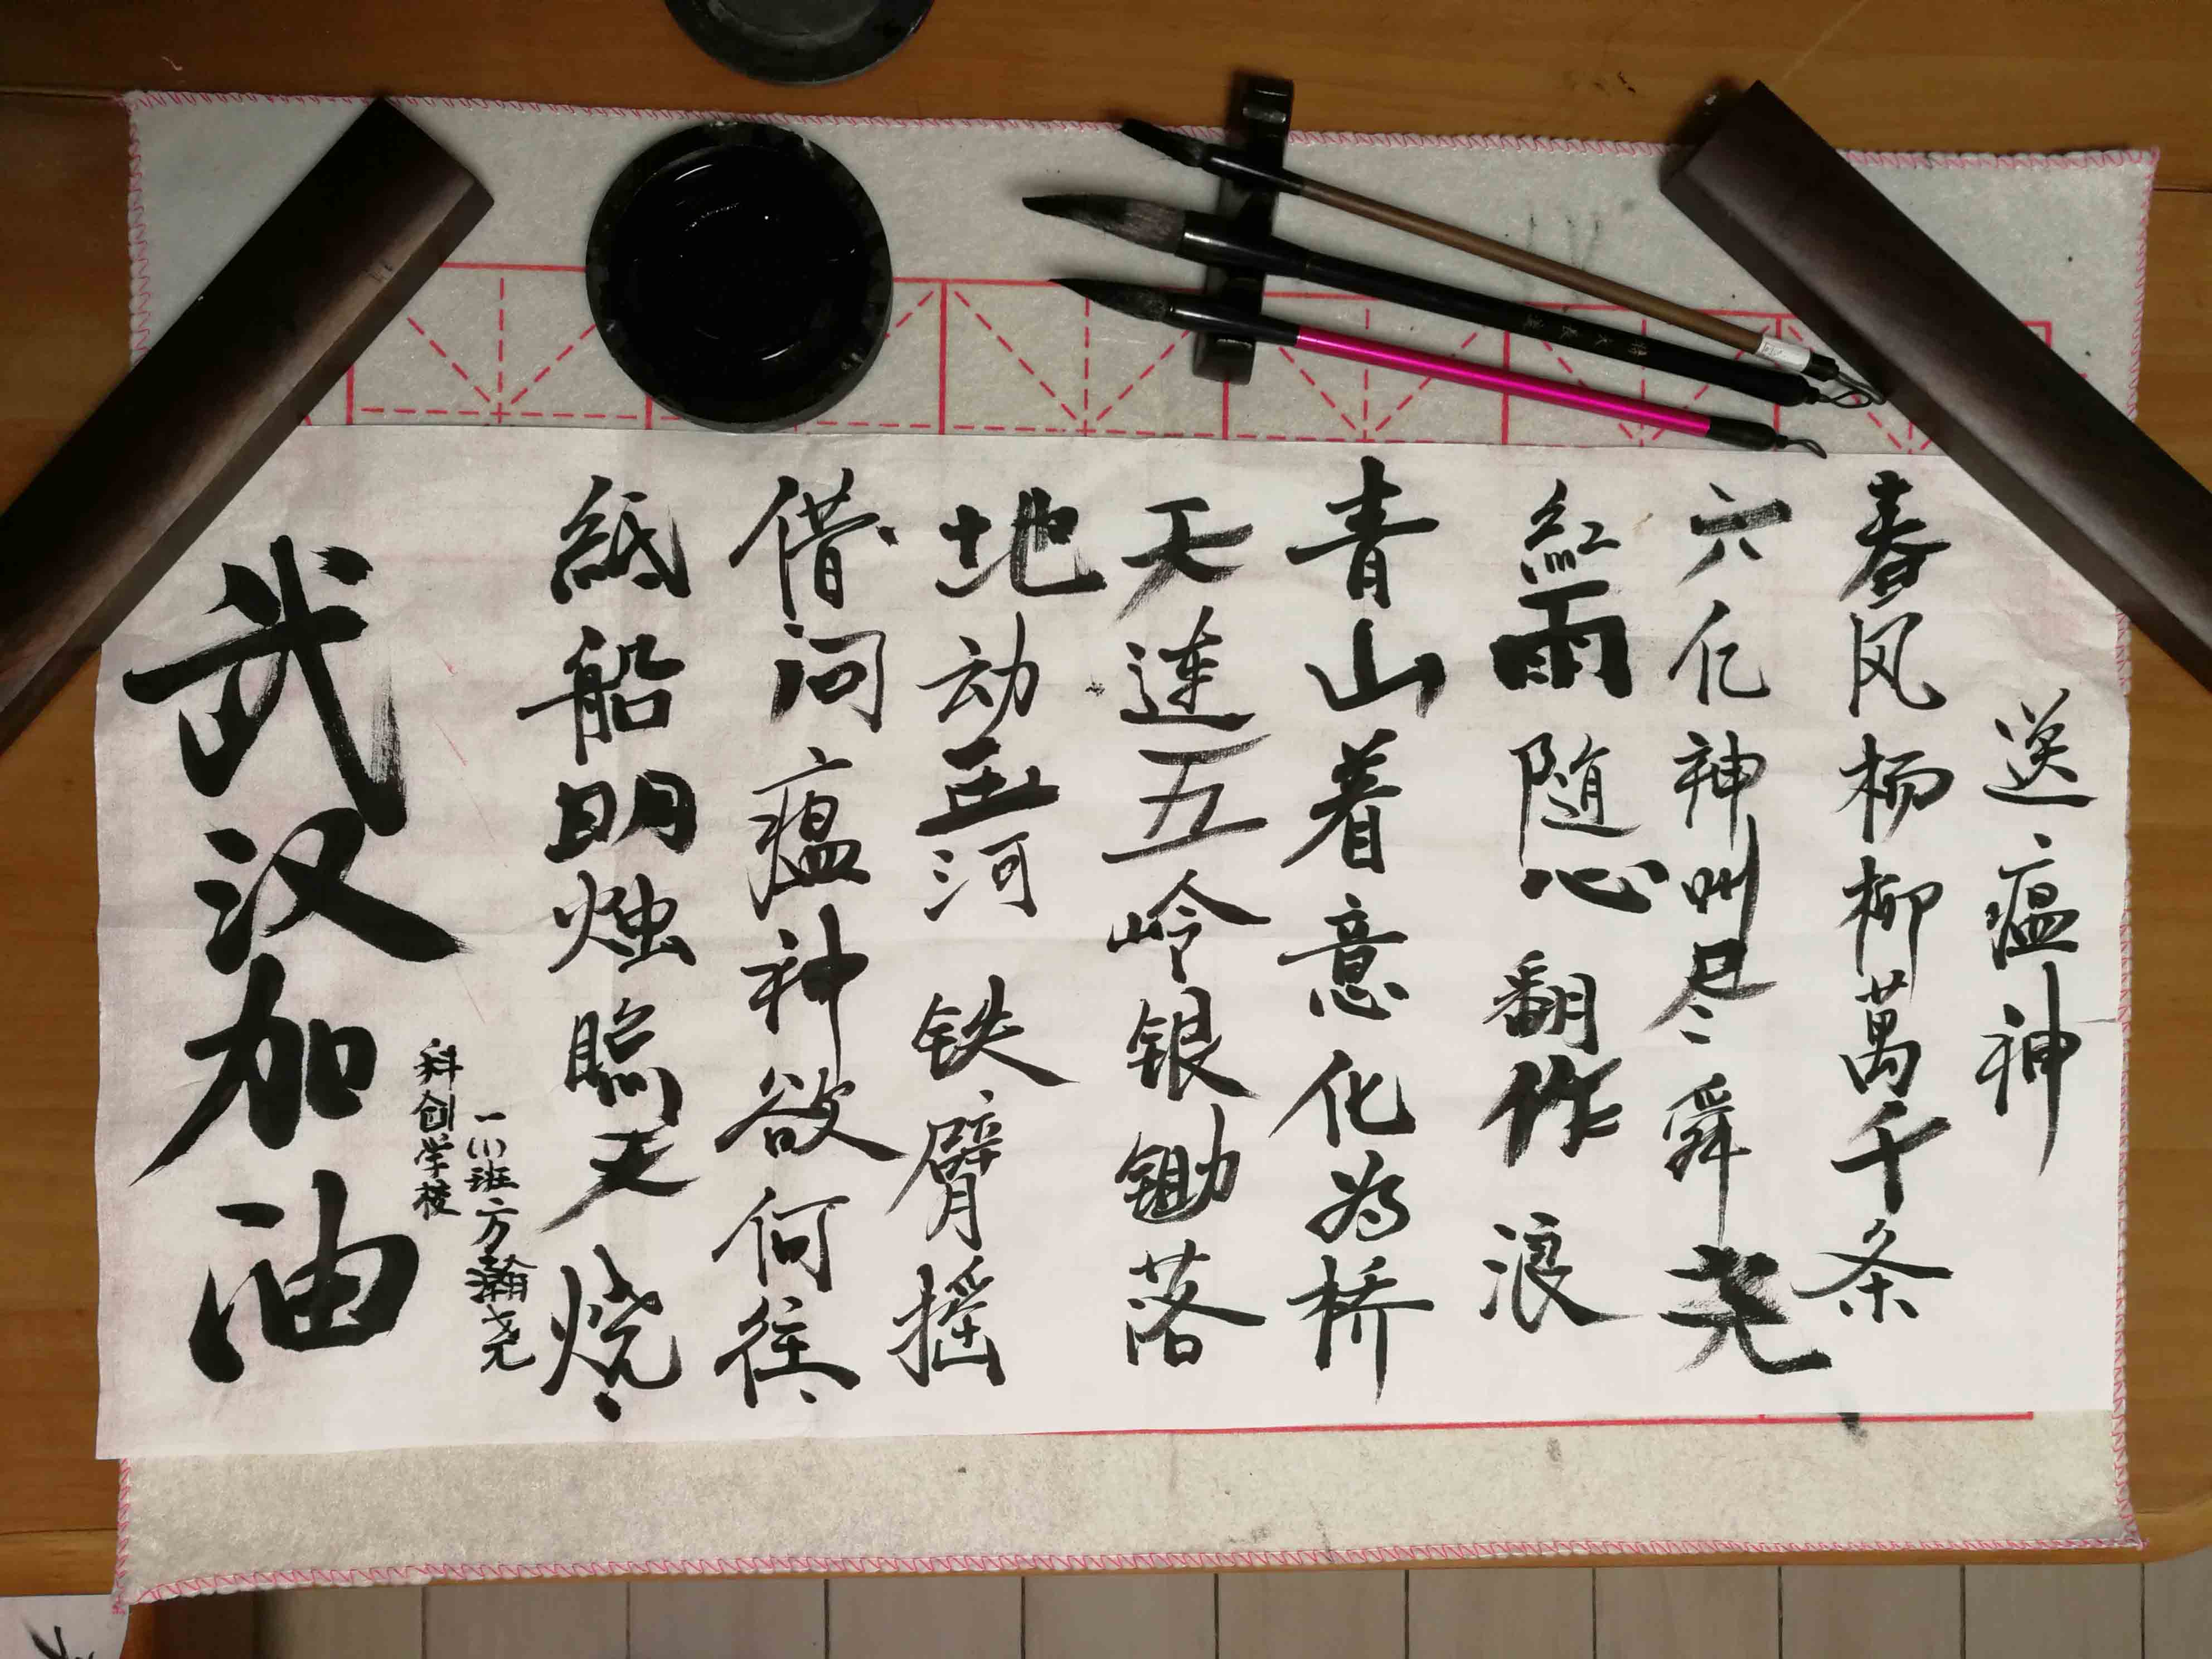 送瘟神
春风杨柳萬千条
六亿神州尽舜尧
紅雨随心翻作浪
青山着意化为桥
天连五岭银锄落
地动玉河铁臂摇
借问瘟神欲何往
紙船明烛照天烧
一(1)班方瀚尧
科创学校
武汉加油